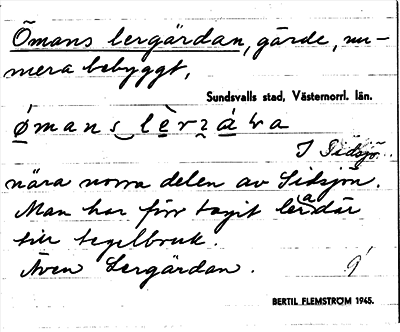 Ömans lergärdan, gärde, nu-
mera bebyggt,
Sundsvalls stad, Västernorrl. län.
I Sidsjö.
nära norra delen av Sidsjön.
Man har förr tagit lera där
till tegelbruk.
Även Lergärdan.
BERTIL FLEMSTRÖM 1945.